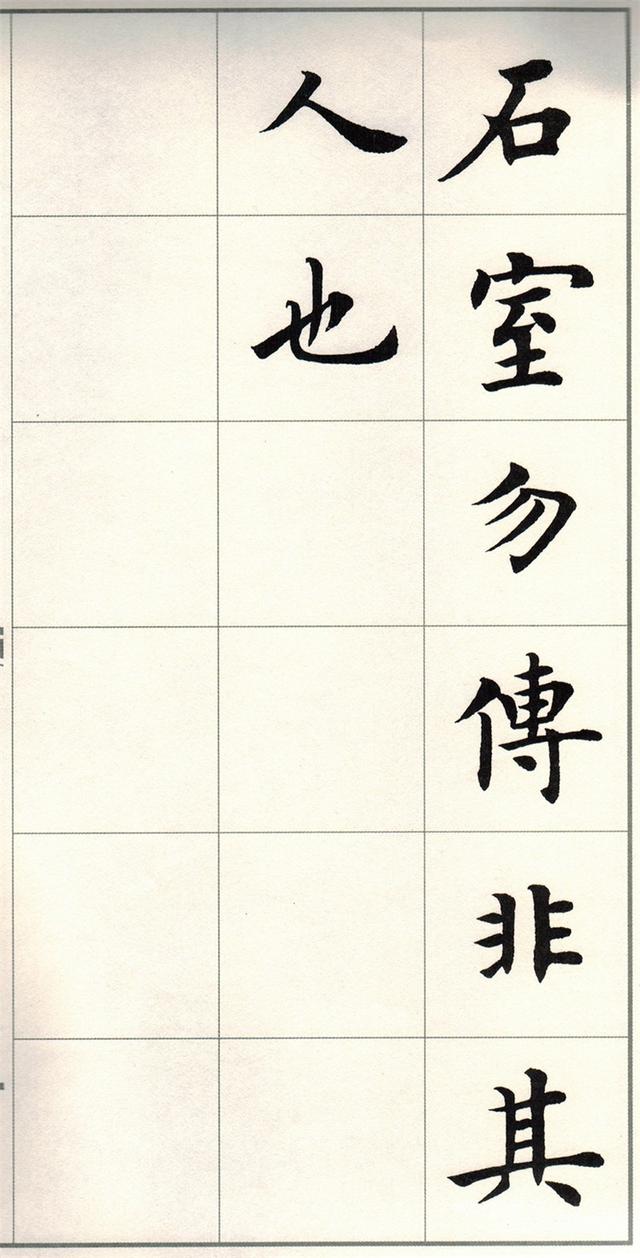 石室勿傳非其
人也